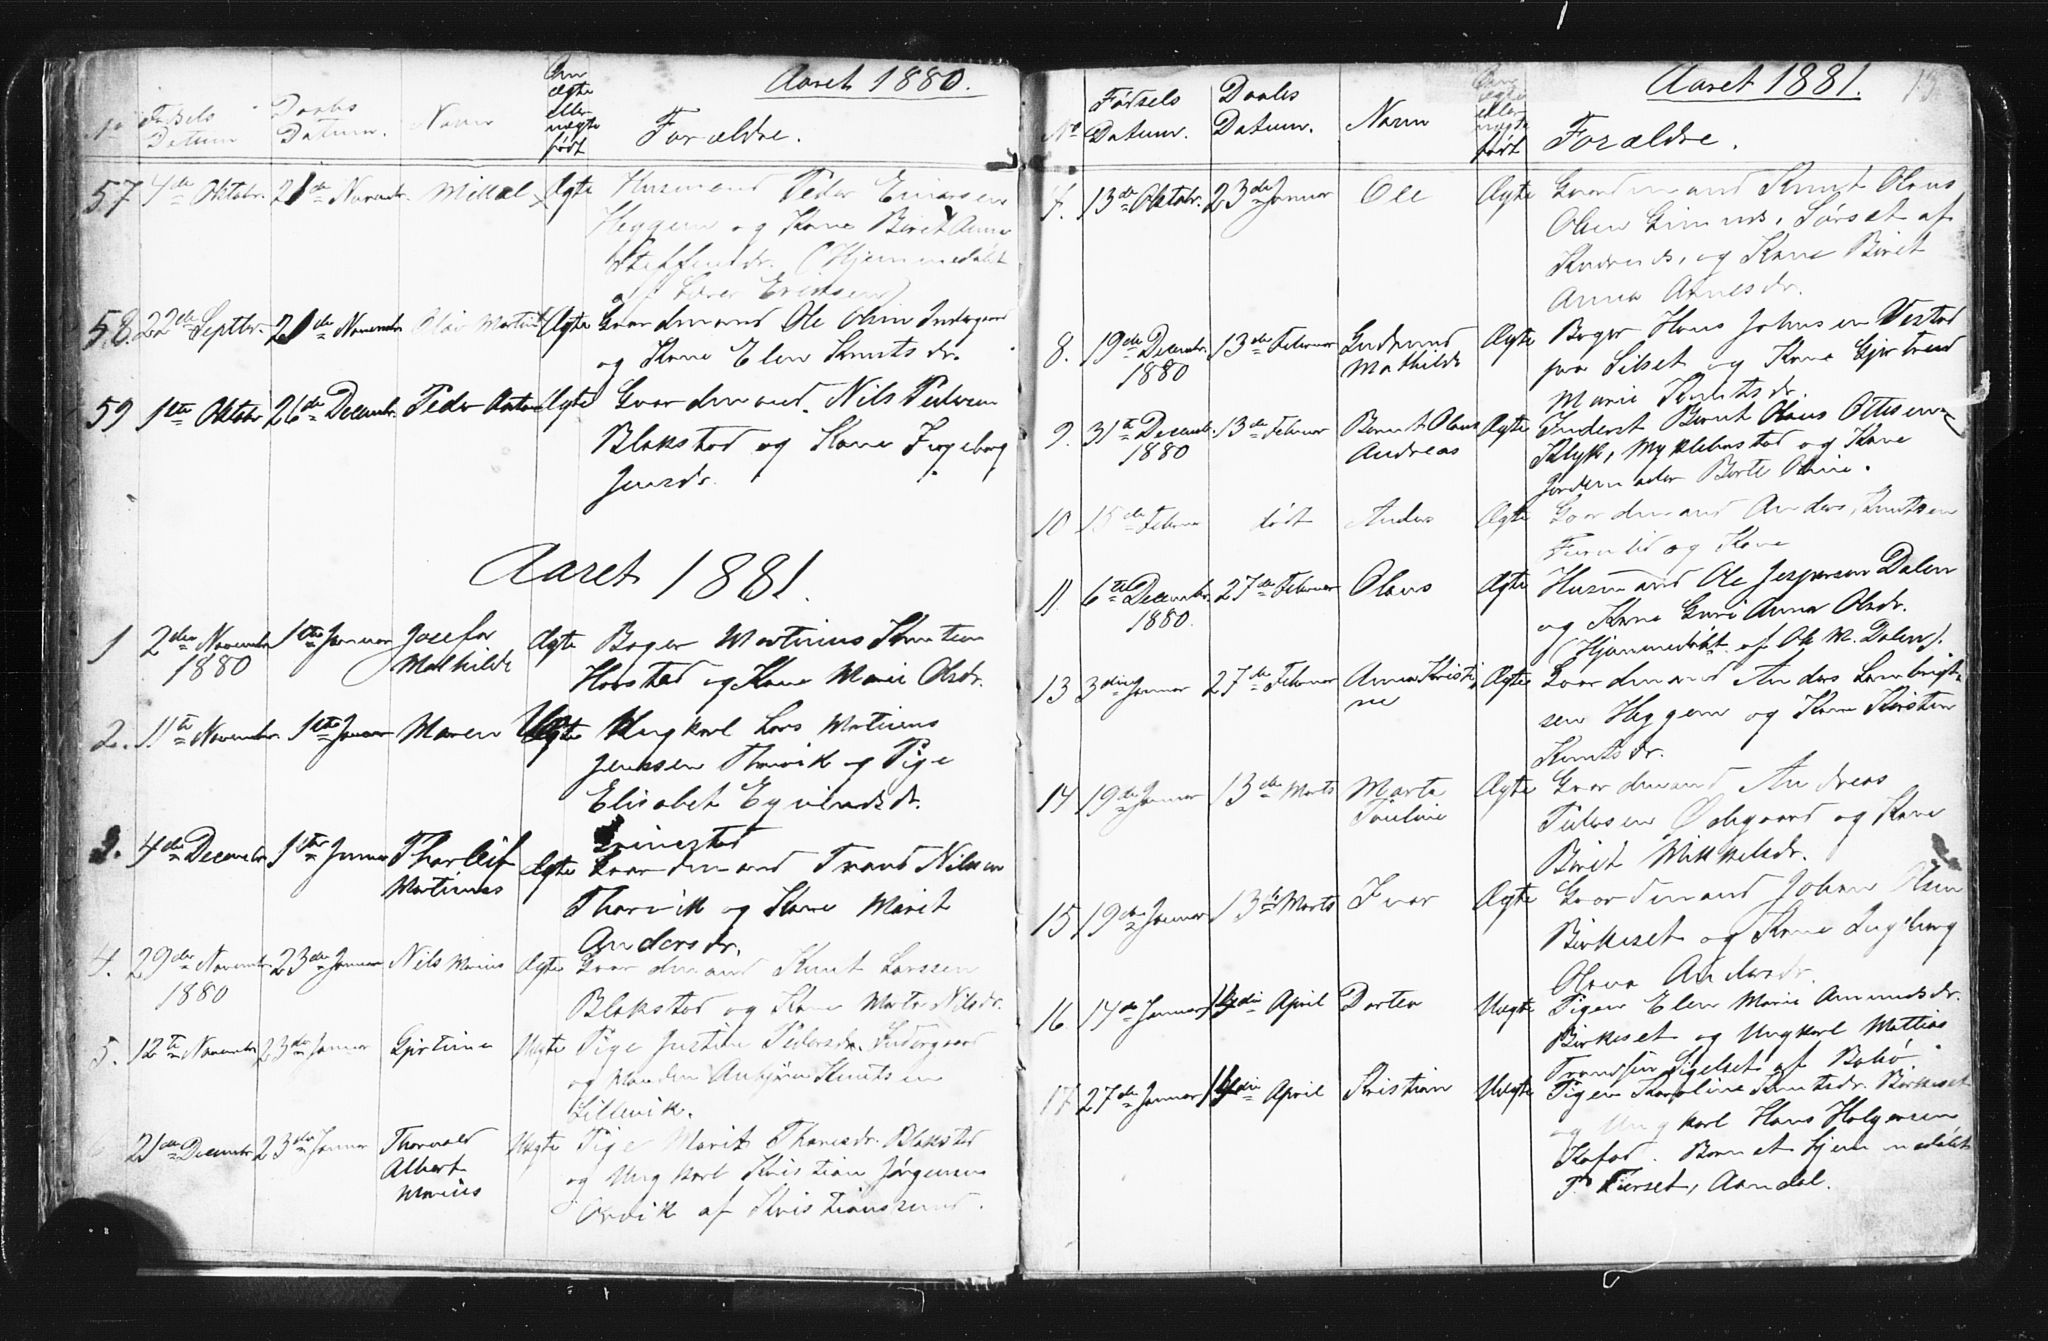 Aaret 1880.
No Fødsels Datum Daabs Datum. Navn Om ægte eller uægte født Forældre.
57 4de Oktobr. 21de Novembr. Mikal Ægte Husmand Peder Einarsen
Heggem og Kone Berit Anna
Steffensdr. (Hjemmedøbt
af Lærer Eriksen)
58. 22de Septbr. 21de Novembr. Olav Martin Ægte Gaardmand Ole Olsen Indergaard
og Kone Elen Knutsdr.
59 1ste Oktobr 26de Decembr. Peder Anton Ægte Gaardmand Nils Pedersen
Blakstad og Kone Ingeborg
Jensdr.
Aaret 1881.
1 2den Novembr 1ste Januar Josefa Ægte Bøger Martinus Knutsen
1880 Mathilde Harstad og Kone Marie Olsdr.
2. 11te Novembr 1ste Januar Maren Uægte Ungkarl Lars Martinus
Jenssen Thorvik og Pige
Elisabet Eyvindsdr.
Grimstad
3. 4de Decembr 1ste Januar Tharleif Ægte Gaardmand Trond Nilssen
Martinus Thorvik og Kone Marit
Andersdr.
4. 29de Novembr 23de Januar Nils Marius Ægte Gaardmand Knut Larssen
1880 Blakstad og Kone Marta Nilsdr.
5. 12te Novembr 23de Januar Gjertine Uægte Pige Justine Pedersdr. Indergaard
og Manden Anbjørn Knutsen
Lillevik.
6 21de Decembr 23de Januar Thorvald Uægte Pige Marit Thoresdr. Blakstad
Albert og Ungkarl Kristian Jørgensen
Marius Orvik af Kristianssund.
Aaret 1881. 13
No Fødsels Datum. Daabs Datum. Navn Om ægte eller uægte født Forældre.
7. 13de Oktobr. 23de Januar Ole Ægte Gaardmand Knut Olaus
Olsen Gimnes, Sørset af
og Kone Berit
Anna Arnesdr.
8. 19de Decembr. 13de Februar Gudrund Ægte Bøger Hans Johnsen Vestad
1880 Mathilde paa Silset og Kone Gjertrud
Marie Knutsdr.
9. 31te Decembr. 13de Februar Bernt Olaus Ægte Inderst Bernt Olaus Ottesen
1880 Andreas Klyk, Myklebostad og Kone
Jordemoder Berte Oline.
10 15de Februar død Anders Ægte Gaardmand Anders Knutsen
Furulid og Kone
11 6te Decembr. 27de Februar Olaus Ægte Husmand Ole Jespersen Dalen
1880. og Kone Guri Anna Olsdr.
(Hjemmedøbt af Ole M. Dalen).
13 3die Januar 27de Februar Anna Kristi- Ægte Gaardmand Anders Lambrigt-
ne sen Heggem og Kone Kirsten
Knutsdr.
14 19de Januar 13de Marts Marta Ægte Gaardmand Andreas
Pauline Pedersen Ødegaard og Kone
Berit Mikkelsdr.
15 19de Januar 13de Marts Ivar Ægte Gaardmand Johan Olsen
Birkeset og Kone Ingeborg
Olava Andersdr.
16 14de Januar April Dortea Uægte Pigen Elen Marie Amundsdr.
Birkeset og Ungkarl Mattias
Trondsen Sigelset af Bolsø
17. 27de Januar April Kristian Uægte Pigen Karoline Knutsdr. Birkeset
og Ungkarl Hans Holgersen
Kafod. Barnet hjemmedøbt
Aandal.